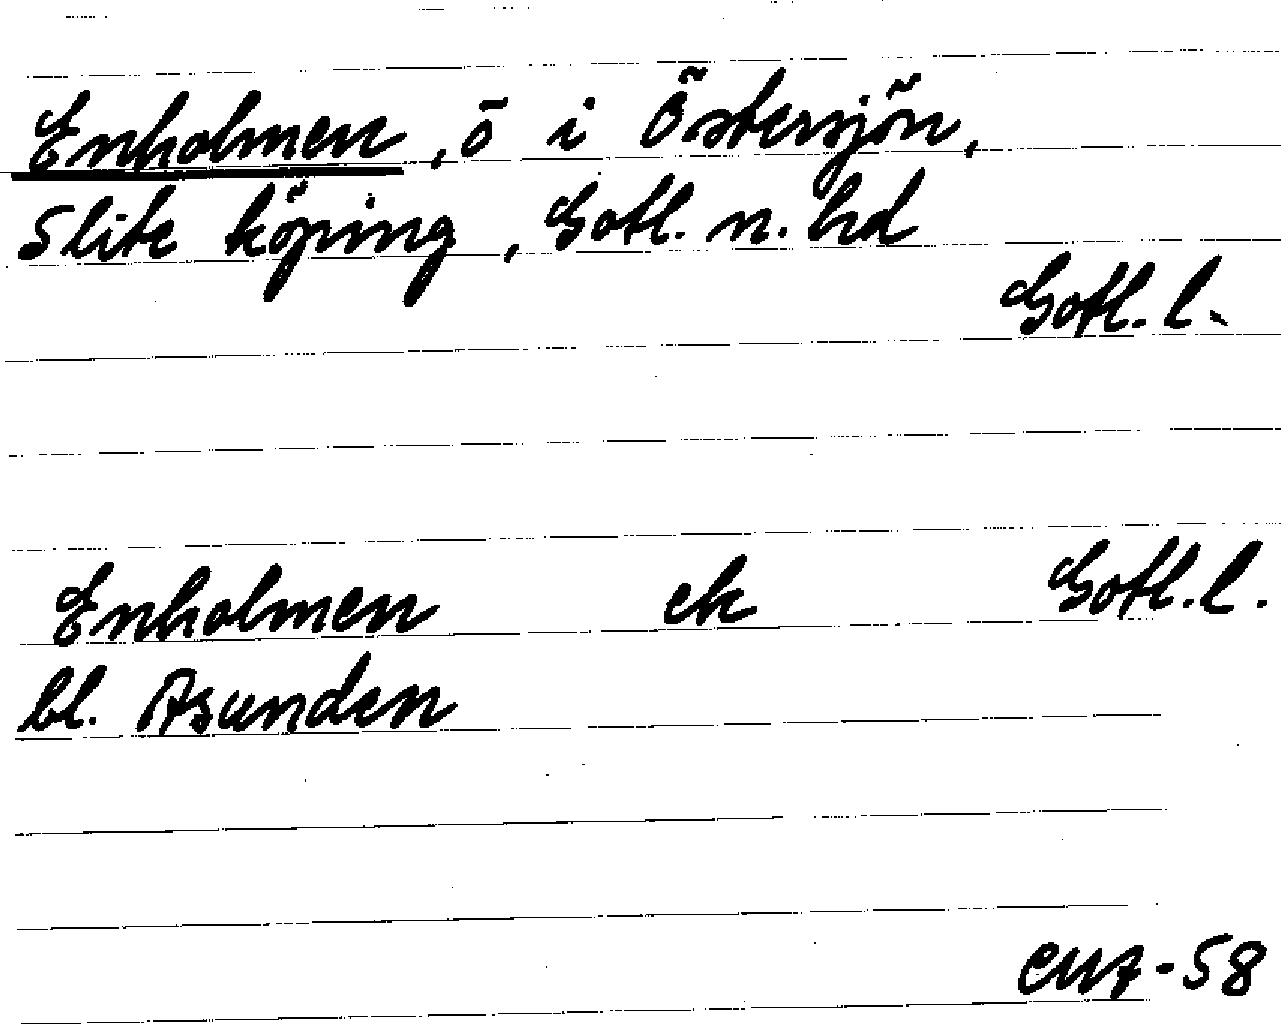 Enholmen, ö i Östersjön,
Slite köping, Gotl. n. hd
Gotl. l.
Enholmen ek Gotl. l.
bl. Asunden
-58